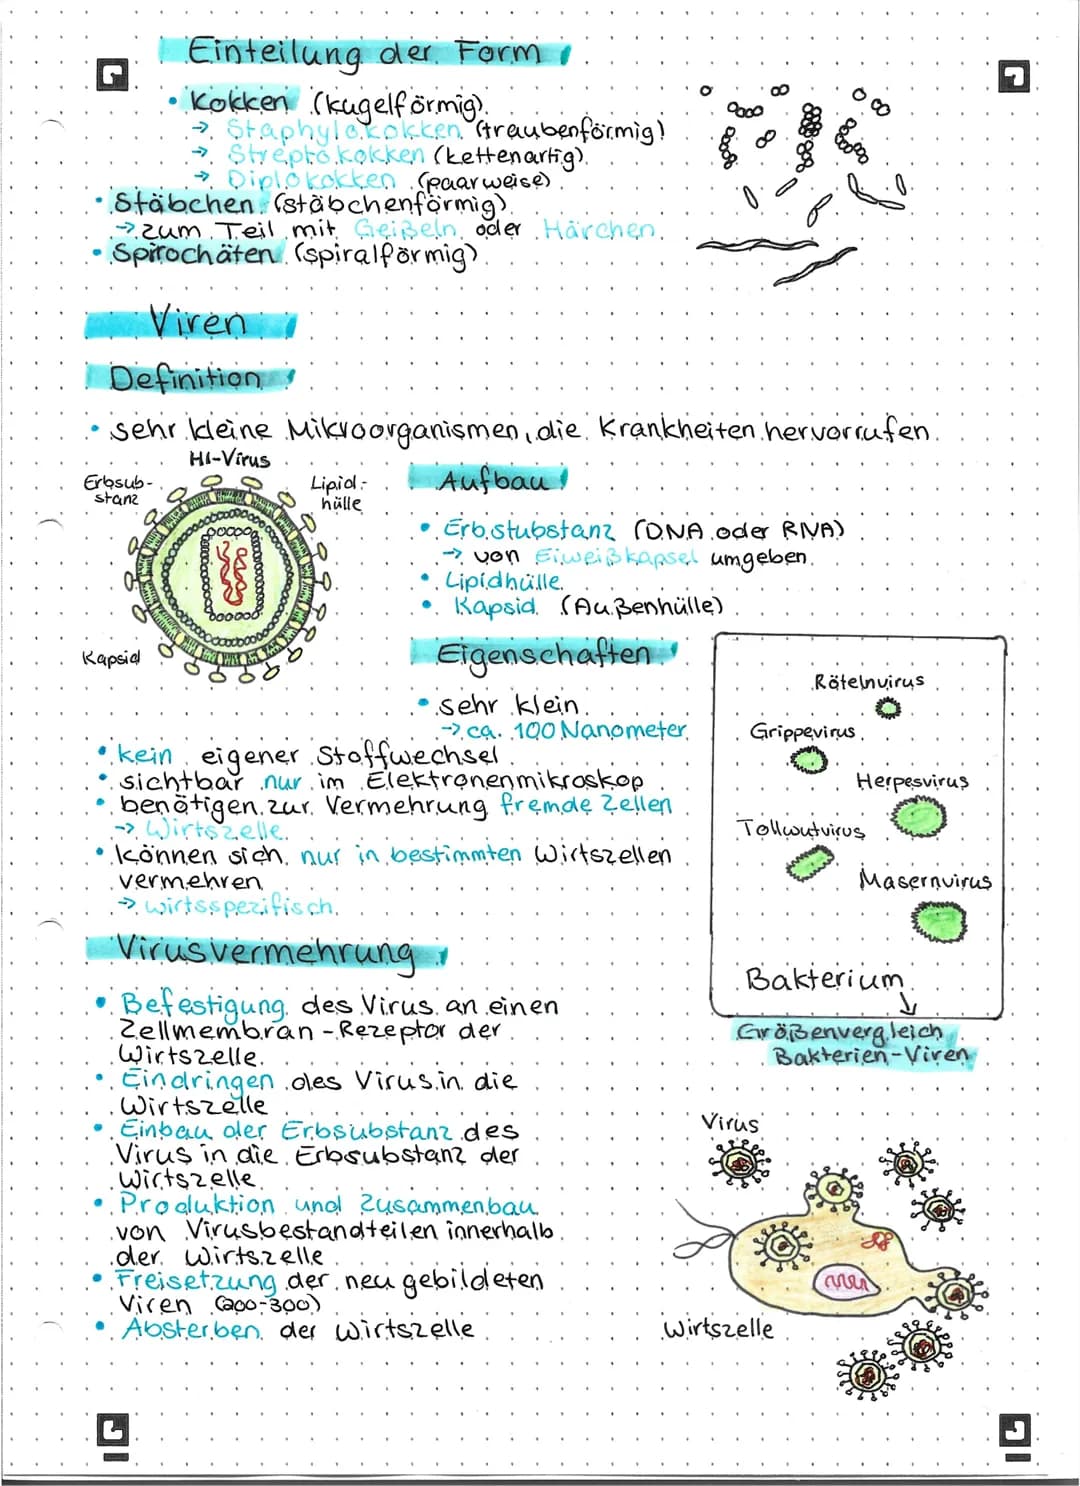 Einteilung der Form
• Kokken (kugelförmig)
→ Staphylokokken (traubenförmig)
→ Streptokokken (kettenartig)
→ Diplokokken (paarweise)
• Stäbchen (stäbchenförmig)
→ zum Teil mit Geißeln oder Härchen
• Spirochäten (spiralförmig)
Viren
Definition
• sehr kleine Mikroorganismen, die Krankheiten hervorrufen
HI-Virus
Erbsub-
stanz
Lipid-
hülle
Kapsid
Aufbau
• Erbstubstanz (DNA oder RNA)
→ von Eiweißkapsel umgeben
• Lipidhülle
• Kapsid (Außenhülle)
Eigenschaften
• sehr klein
→ ca. 100 Nanometer
• kein eigener Stoffwechsel
• sichtbar nur im Elektronenmikroskop
• benötigen zur Vermehrung fremde Zellen
→ Wirtszelle
• können sich nur in bestimmten Wirtszellen
vermehren
→ wirtsspezifisch
Rötelnvirus
Grippevirus
Herpesvirus
Tollwutvirus
Masernvirus
Bakterium
Größenvergleich
Bakterien-Viren
Virusvermehrung
• Befestigung des Virus an einen
Zellmembran-Rezeptor der
Wirtszelle
• Eindringen des Virus in die
Wirtszelle
• Einbau der Erbsubstanz des
Virus in die Erbsubstanz der
Wirtszelle
• Produktion und Zusammenbau
von Virusbestandteilen innerhalb
der Wirtszelle
• Freisetzung der neu gebildeten
Viren (200-300)
• Absterben der Wirtszelle
Virus
Wirtszelle